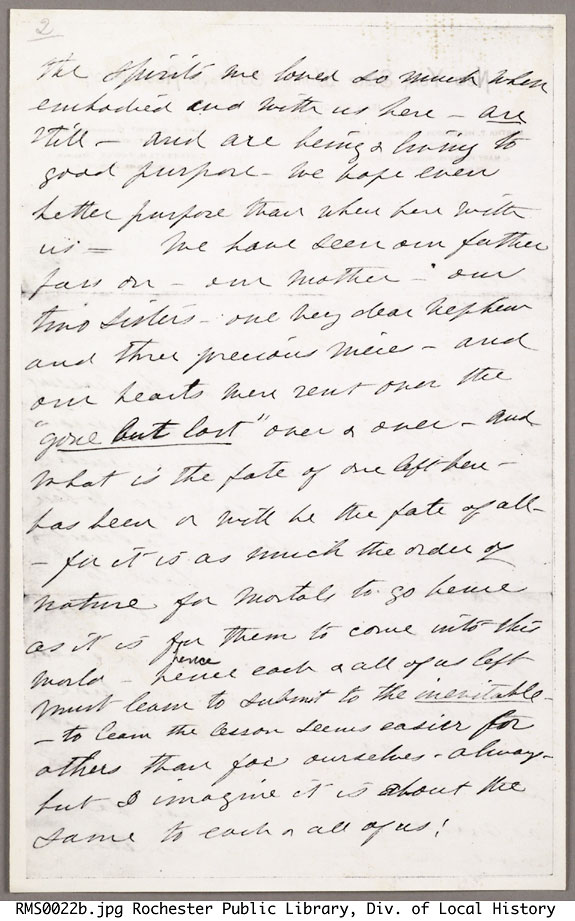 2
the spirits we loved so much when
embodied and with us here - are
still - and are being & living to
good purpose - we hope even
better purpose than when here with
us = We have seen our father
pass on - our mother - our
two sisters - one very dear nephew
and three precious nieces - and
our hearts were rent over the
"gone but lost" over & over - and
what is the fate of one left here -
has been or will be the fate of all -
- for it is as much the order of
nature for mortals to go hence
as it is for them to come into this
hence
world - hence each & all of us left
must learn to submit to the inevitable -
- to learn the lesson seems easier for
others than for ourselves - always -
but I imagine it is about the
same to each & all of us!
RMS0022b.jpg Rochester Public Library, Div. of Local History